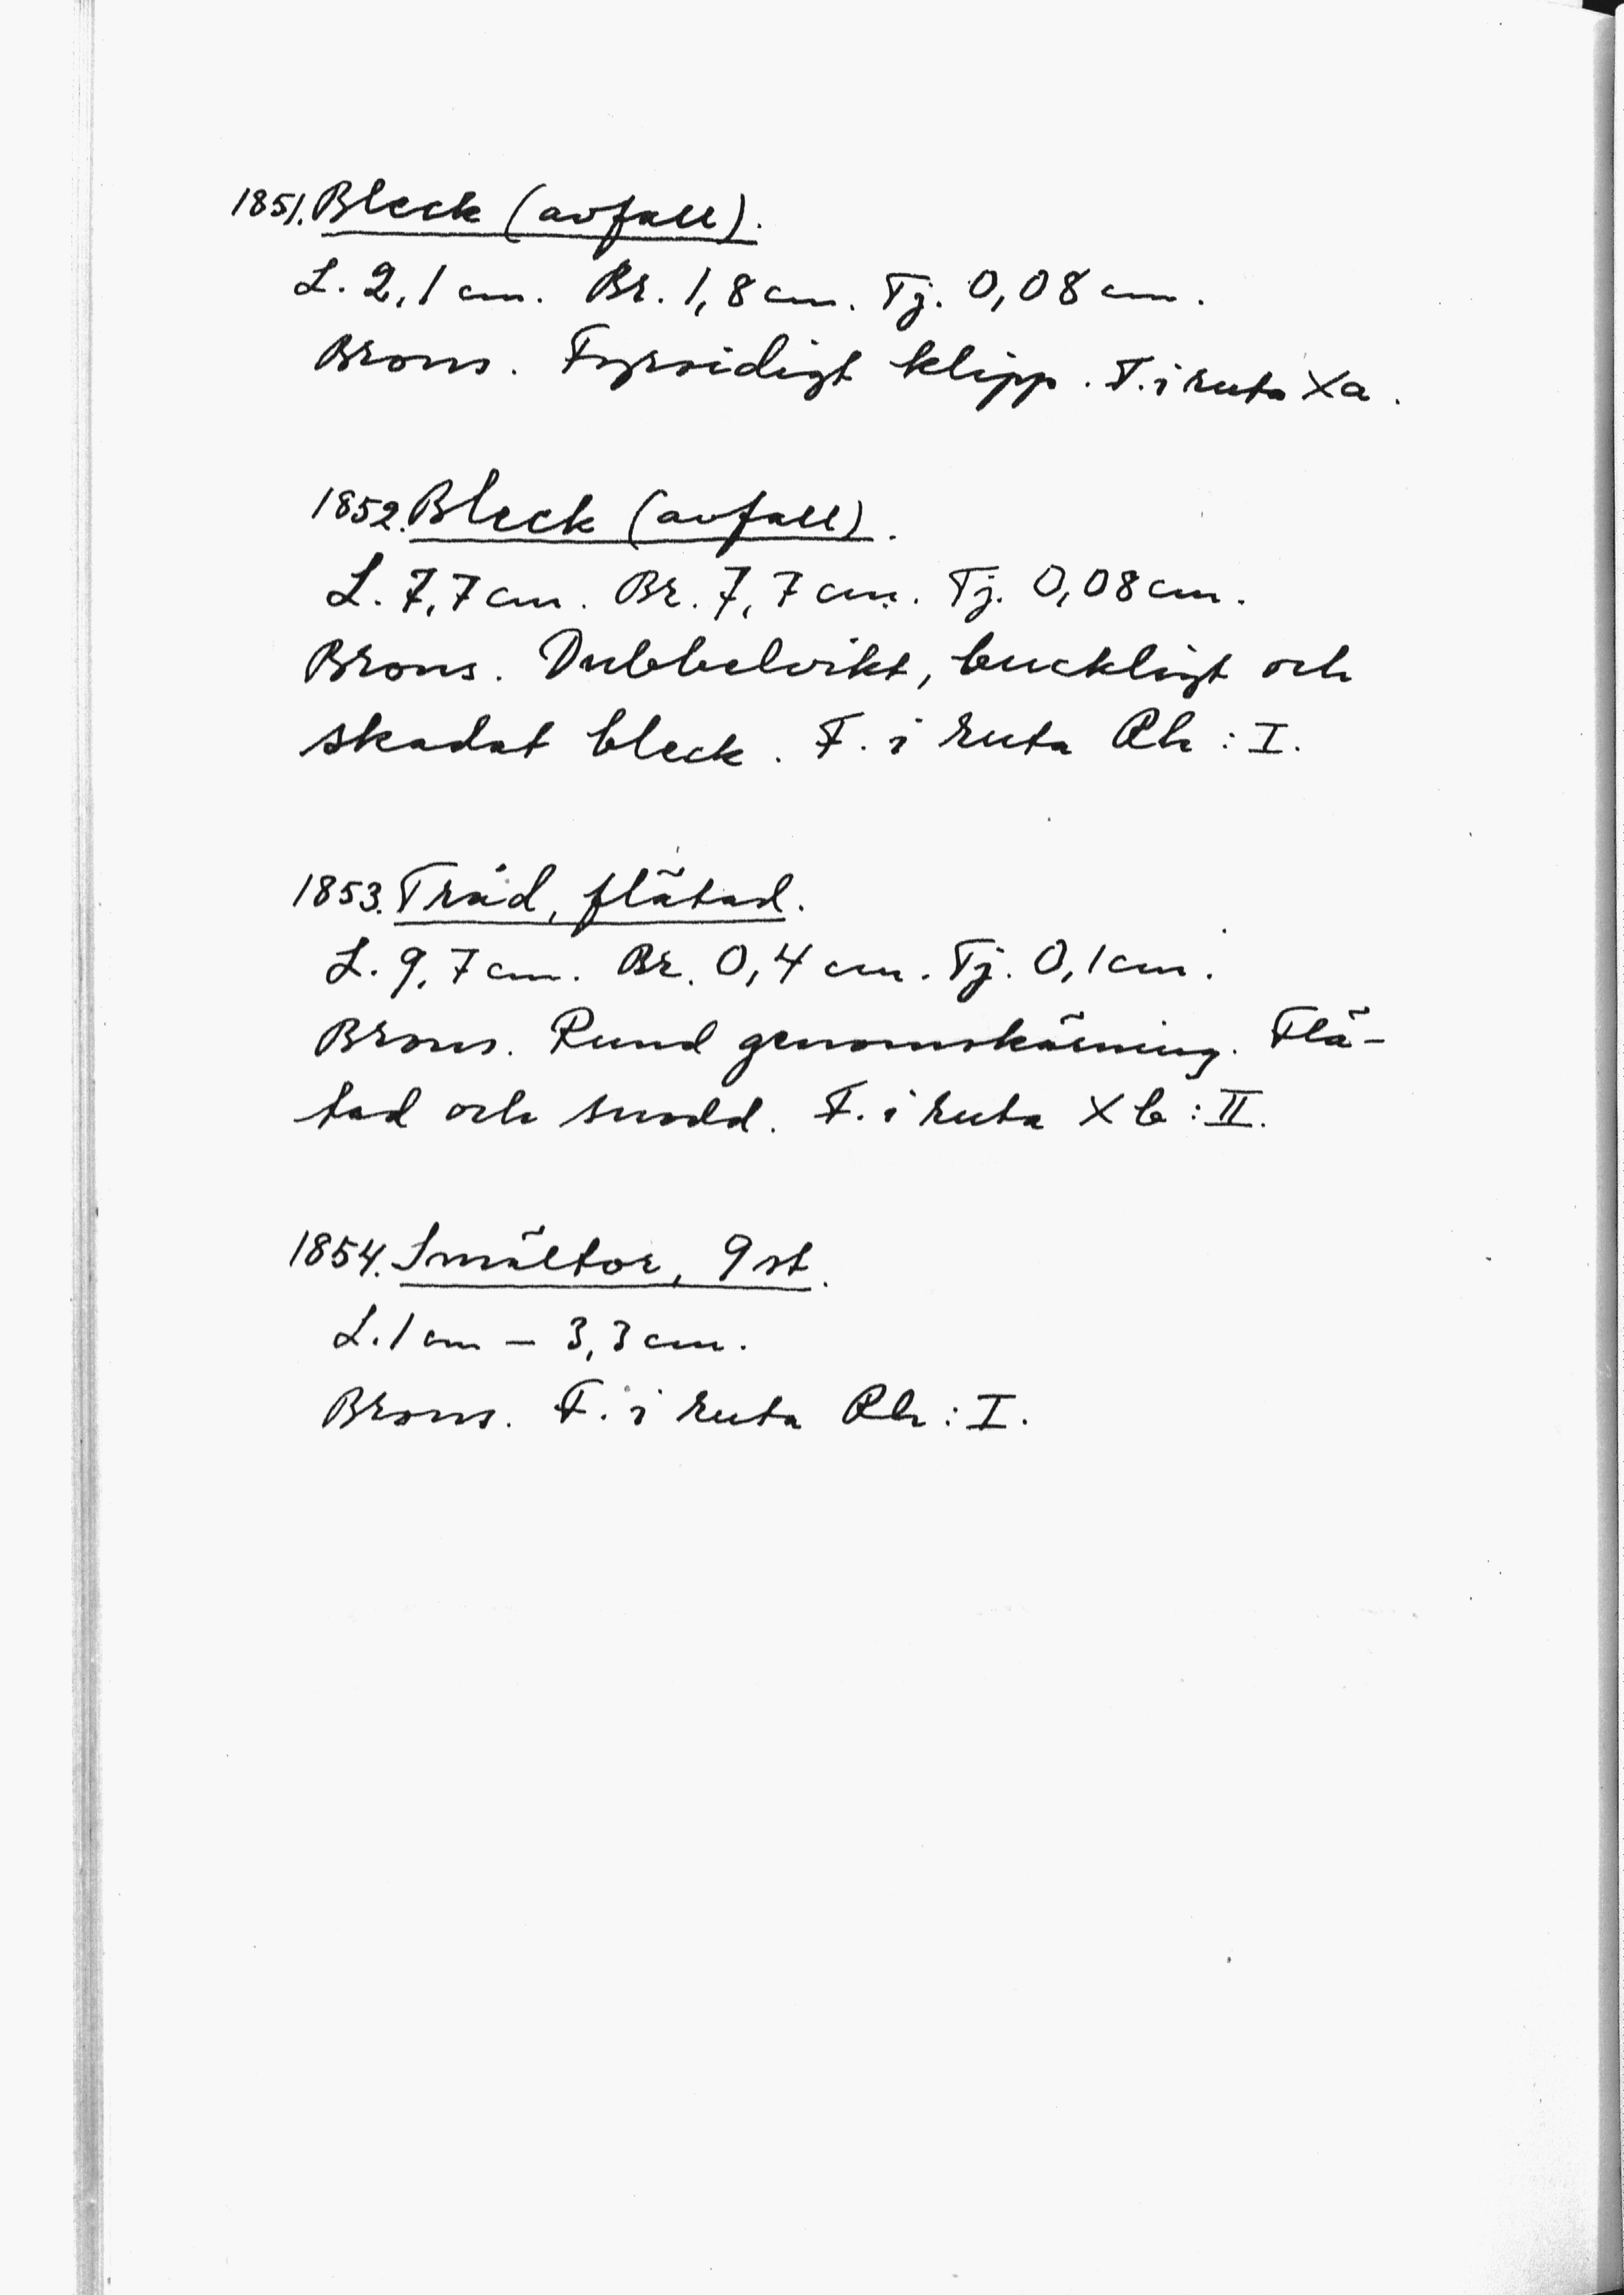 1851. Bleck (avfall).
L. 2,1 cm. Br. 1,8 cm. Tj. 0,08 cm.
Brons. Fyrsidigt klipp. F. i ruta Xa.
1852. Bleck (avfall).
L. 7,7 cm. Br. 7,7 cm. Tj. 0,08 cm.
Brons. Dubbelvikt, buckligt och
skadat bleck. F. i ruta Rh : I.
1853. Tråd, flätad.
L. 9,7 cm. Br. 0,4 cm. Tj. 0,1 cm.
Brons. Rund genomskärning. Flä-
tad och snodd. F. i ruta Xb : II.
1854. Smältor, 9 st.
L. 1 cm – 3,3 cm.
Brons. F. i ruta Rh : I.